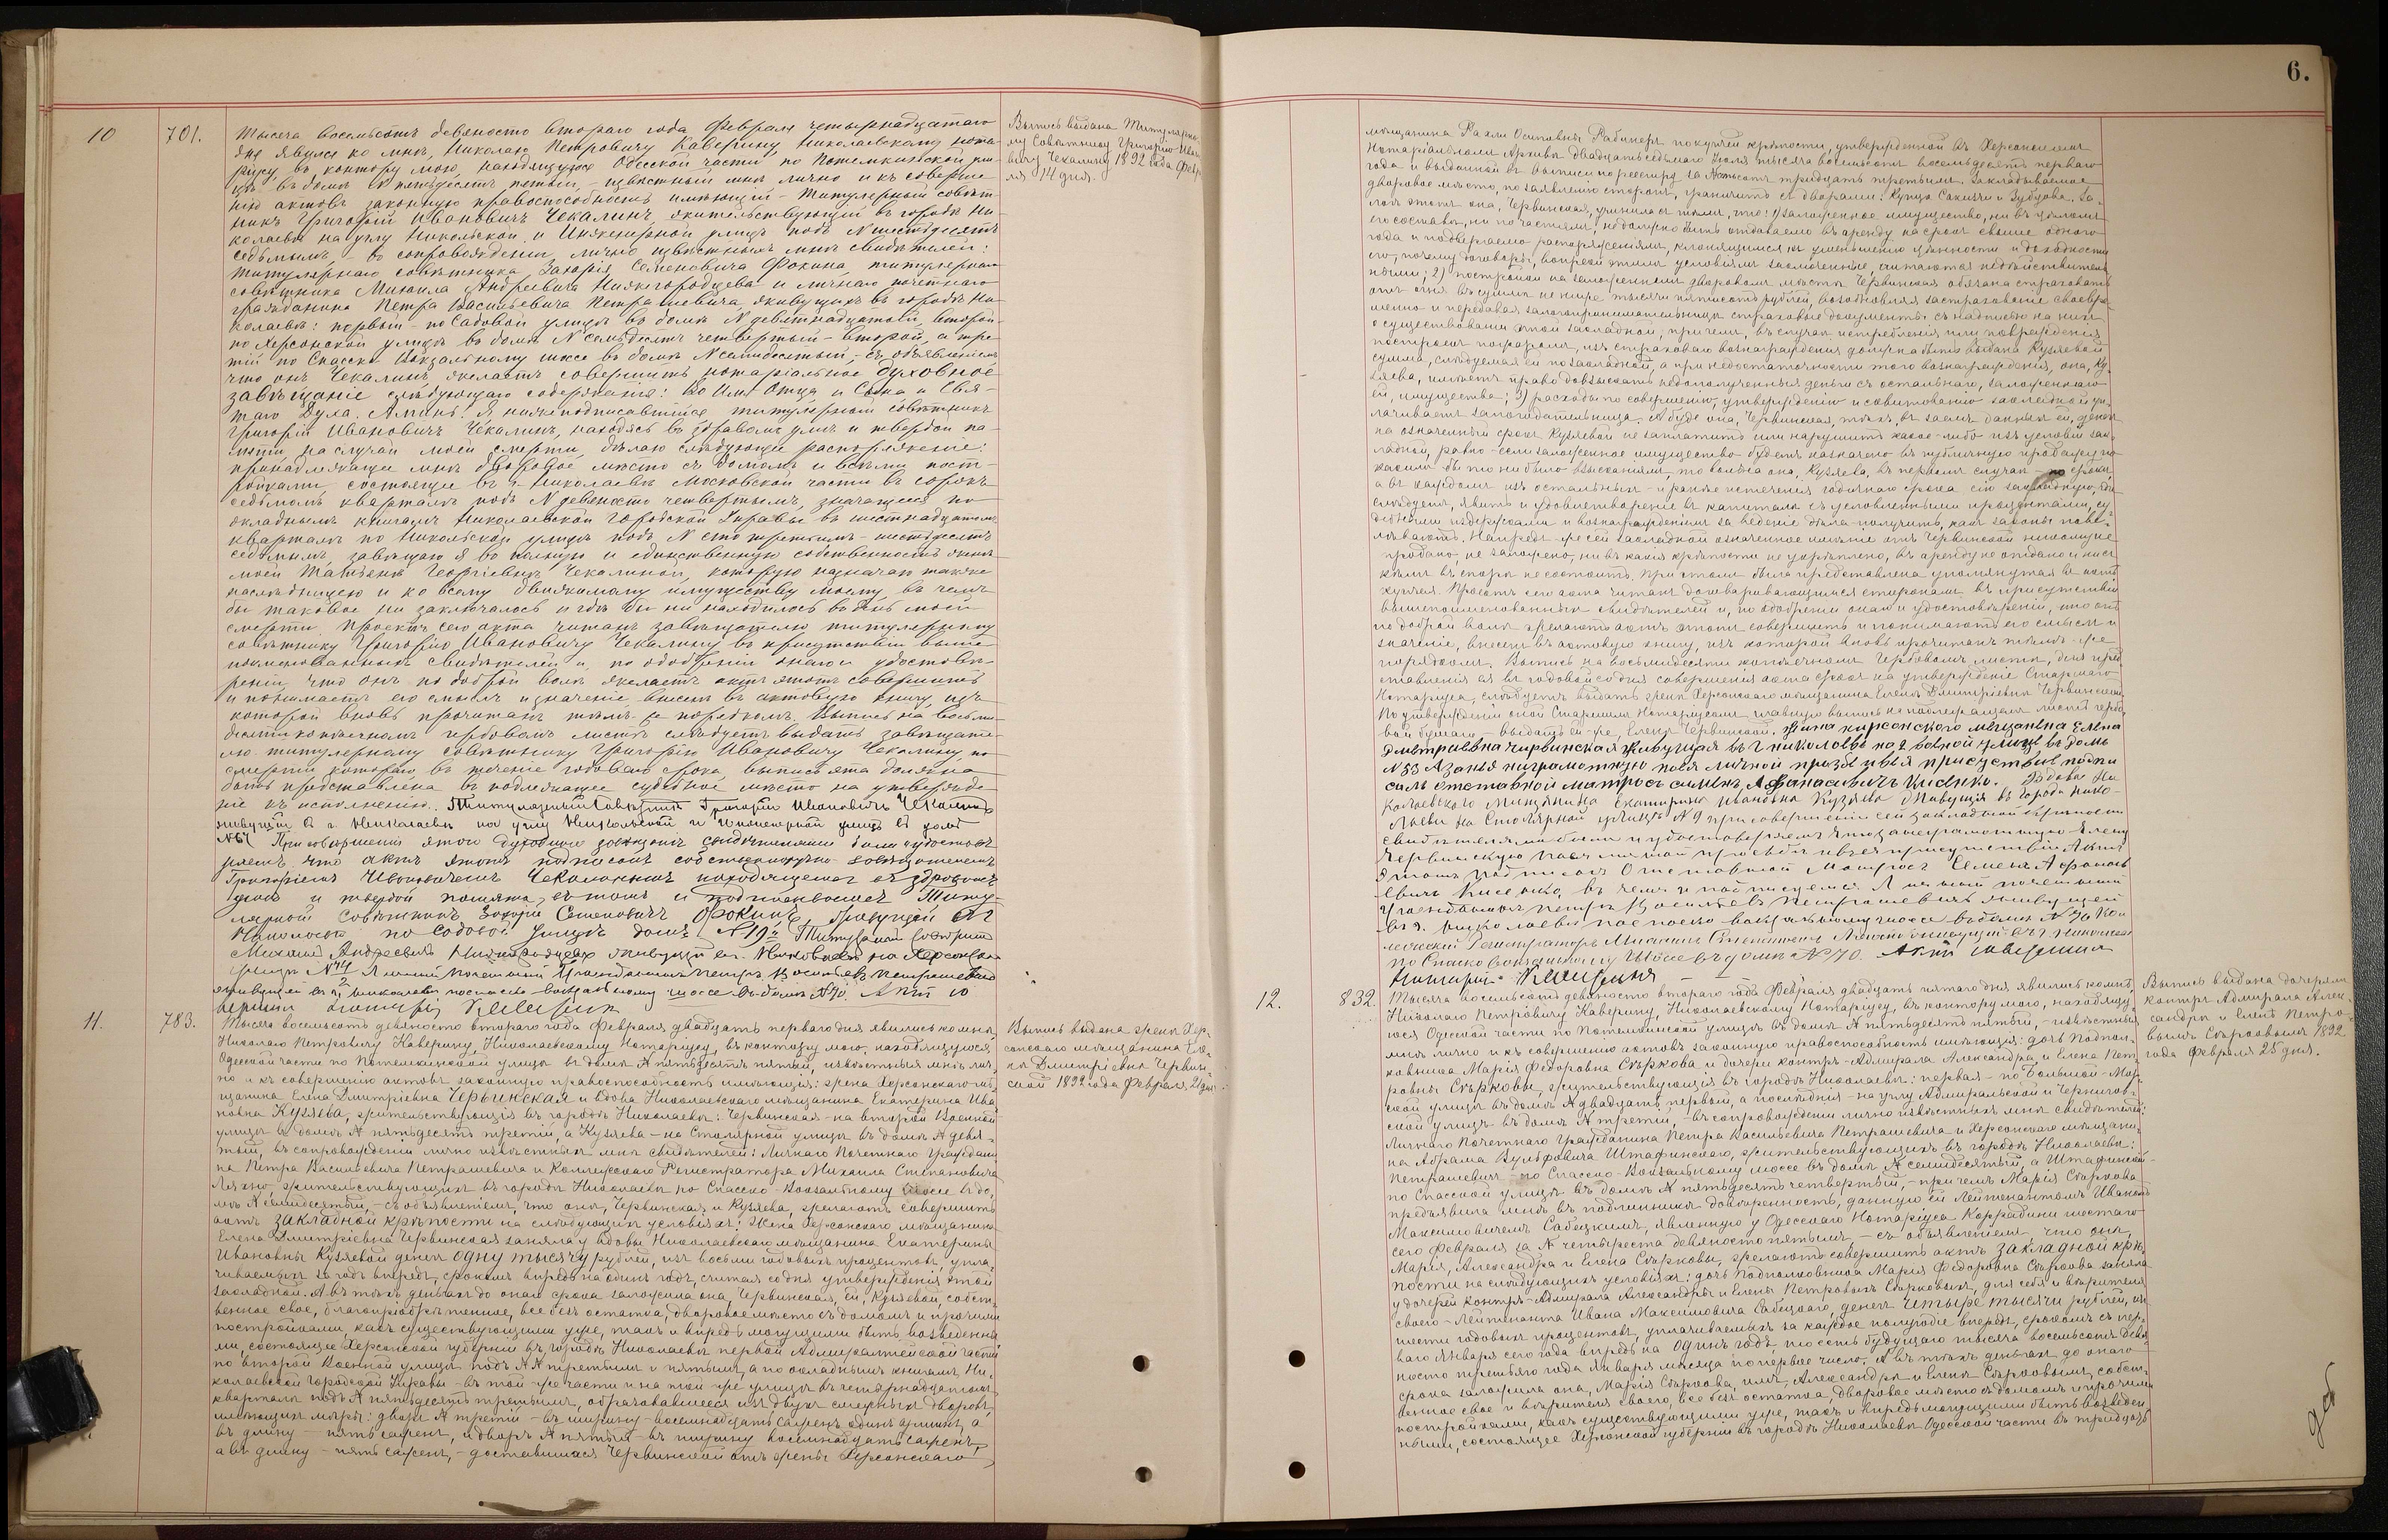 6.
10
701.
Тысяча восемьсотъ девяносто втораго года Февраля четырнадцатаго
дня явился ко мнѣ, Николаю Петровичу Каверину, Николаевскому нота-
ріусу, въ контору мою, находящуюся Одесской части по Потемкинской ули-
цѣ въ домѣ N пятьдесятъ пятый, извѣстный мнѣ лично и къ соверше-
нію актовъ законную правоспособность имѣющій - Титулярный совѣт-
никъ Григорій Ивановичъ Чекалинъ, жительствующій въ городѣ Ни-
колаевѣ на углу Никольской и Инженерной улицъ подъ N шестьдесятъ
седьмымъ, - въ сопровожденіи лично извѣстныхъ мнѣ свидѣтелей:
титулярнаго совѣтника Захарія Семеновича Фокина, титулярнаго
совѣтника Михаила Андреевича Нижегородцева и личнаго почетнаго
гражданина Петра Васильевича Петрашевича живущихъ въ городѣ Ни-
колаевѣ: первый - по Садовой улицѣ въ домѣ N девятнадцатый, второй -
по Херсонской улицѣ въ домѣ N семьдесятъ четвертый - второй, а тре-
тій по Спасско Вокзальному шоссе въ домѣ N семидесятый, - съ объявленіемъ
что онъ Чекалинъ, желаетъ совершить нотаріальное духовное
завѣщаніе слѣдующаго содержанія: Во Имя Отца и Сына и Свя-
таго Духа. Аминь. Я нижеподписавшійся титулярный совѣтникъ
Григорій Ивановичъ Чекалинъ, находясь въ здравомъ умѣ и твердой па-
мяти, на случай моей смерти, дѣлаю слѣдующее распоряженіе:
принадлежащее мнѣ дворовое мѣсто съ домомъ и всѣми пост-
ройками, состоящее въ г. Николаевѣ Московской части въ сорокъ
седьмомъ кварталѣ подъ N девяносто четвертымъ, значащееся по
окладнымъ книгамъ Николаевской Городской Управы въ шестнадцатомъ
кварталѣ по Никольской улицѣ подъ N сто третьимъ - шестьдесятъ
седьмымъ, завѣщаю я въ полную и единственную собственность женѣ
моей Татьянѣ Георгіевнѣ Чекалиной, которую назначаю также
наслѣдницею и ко всему движимому имуществу моему, въ чемъ
бы таковое ни заключалось и гдѣ бы ни находилось во день моей
смерти. Проектъ сего акта читанъ завѣщателю титулярному
совѣтнику Григорію Ивановичу Чекалину въ присутствіи выше
поименованныхъ свидѣтелей и, по одобреніи онаго и удостовѣ-
реніи, что онъ по доброй волѣ желаетъ актъ этотъ совершить
и понимаетъ его смыслъ и значеніе, внесенъ въ актовую книгу, изъ
которой вновь прочитанъ тѣмъ-же порядкомъ. Выпись на восьми-
десятикопѣечномъ гербовомъ листѣ слѣдуетъ выдать завѣщате-
лю титулярному совѣтнику Григорію Ивановичу Чекалину, по
смерти котораго, въ теченіе годоваго срока, выпись эта должна
быть представлена въ подлежащее судебное мѣсто на утвержде-
ніе къ исполненію. Титулярный Совѣтникъ Григорій Ивановичъ Чекалинъ
живущій въ г. Николаевѣ на углу Никольской и Инженерной улицъ въ домѣ
N 67 При совершеніи этого духовнаго завѣщанія свидѣтелями были и удостов-
ряемъ, что актъ этотъ подписанъ собственноручно завѣщателемъ
Григоріемъ Ивановичемъ Чекалинымъ находящемся въ здравомъ
умѣ и твердой памяти, въ томъ и подписываемся Титу-
лярный Совѣтникъ Захарій Семеновичъ Фокинъ, живущій въ г
Николаевѣ по Садовой улицѣ домъ N 19й Титулярный Совѣтникъ
Михаилъ Андреевичъ Нижегородцевъ живущій въ г. Николаевѣ на Херсонской
улицѣ N 74/2 Личный Почетный Гражданинъ Петръ Васильевъ Петрашевичъ
живущій въ г. Николаевѣ по Спасско вокзальному шоссе въ домѣ N 70. Актъ со
вершилъ Нотаріусъ Каверинъ
Выпись выдана Титулярно-
му Совѣтнику Григорію Ива-
новичу Чекалину 1892 года Февра-
ля 14 дня.
11.
783.
Тысяча восемьсотъ девяносто втораго года Февраля двадцать перваго дня явились ко мнѣ,
Николаю Петровичу Каверину, Николаевскому Нотаріусу, въ контору мою, находящуюся
Одесской части по Потемкинской улицѣ въ домѣ N пятьдесятъ пятый, извѣстныя мнѣ лич-
но и къ совершенію актовъ законную правоспособность имѣющія: жена Херсонскаго мѣ-
щанина Елена Дмитріевна Червинская и вдова Николаевскаго мѣщанина Екатерина Ива
новна Кузяева, жительствующія въ городѣ Николаевѣ: Червинская - на второй Военной
улицѣ въ домѣ N пятьдесятъ третій, а Кузяева - на Столярной улицѣ въ домѣ N девя-
тый, въ сопровожденіи лично извѣстныхъ мнѣ свидѣтелей: Личнаго Почетнаго Граждани
на Петра Васильевича Петрашевича и Коллежскаго Регистратора Михаила Степановича
Ляхно, жительствующихъ въ городѣ Николаевѣ по Спасско-Вокзальному шоссе въ до-
мѣ N семидесятый, - съ объявленіемъ, что онѣ, Червинская и Кузяева, желаютъ совершить
актъ закладной крѣпости на слѣдующихъ условіяхъ: Жена Херсонскаго мѣщанина
Елена Дмитріевна Червинская заняла у вдовы Николаевскаго мѣщанина Екатерины
Ивановны Кузяевой денегъ одну тысячу рублей, изъ восьми годовыхъ процентовъ, упла-
чиваемыхъ за годъ впередъ, срокомъ впредь на одинъ годъ, считая со дня утвержденія этой
закладной. А въ тѣхъ деньгахъ до онаго срока заложила она, Червинская, ей, Кузяевой, собст-
венное свое, благопріобрѣтенное, все безъ остатка, дворовое мѣсто съ домомъ и прочими
постройками, какъ существующими уже, такъ и впредь могущими быть возведенны
ми, состоящее Херсонской губерніи въ городѣ Николаевѣ первой Адмиралтейской части
по второй Военной улицѣ подъ NN третьимъ и пятымъ, а по окладнымъ книгамъ Ни-
колаевской Городской Управы - въ той-же части и на той-же улицѣ въ четырнадцатомъ
кварталѣ подъ N пятьдесятъ третьимъ, образовавшееся изъ двухъ смежныхъ дворовъ,
имѣющихъ мѣры: дворъ N третій - въ ширину - восемнадцать саженъ одинъ аршинъ, а
въ длину - пять саженъ, а дворъ N пятый - въ ширину восемнадцать саженъ,
а въ длину - пять саженъ, - доставшееся Червинской отъ жены Херсонскаго
Выпись выдана женѣ Хер-
сонскаго мѣщанина Еле-
нѣ Дмитріевнѣ Червин-
ской 1892 года Февраля 21 дня.
мѣщанина Рахли Осиповны Рабинеръ по купчей крѣпости, утвержденной въ Херсонскомъ
Нотаріальномъ Архивѣ двадцать седьмого Іюля тысяча восемьсотъ восемьдесятъ перваго
года и выданной въ выписи по реестру за N пятьсотъ тридцать третьимъ. Закладываемое
дворовое мѣсто, по заявленію сторонъ, граничитъ съ дворами: купца Сакизчи и Зубцова. За-
логъ этотъ она, Червинская, учинила съ тѣмъ, что: 1) заложенное имущество, ни въ цѣломъ
его составѣ, ни по частямъ, не должно быть отдаваемо въ аренду на срокъ свыше одного
года и подвергаемо распоряженіямъ, клонящимся къ уменьшенію цѣнности и доходности
его, почему договоры, вопреки этимъ условіямъ заключенные, считаются недѣйствитель-
ными; 2) постройки на заложенномъ дворовомъ мѣстѣ Червинская обязана страховать
отъ огня въ суммѣ не ниже тысячи пятисотъ рублей, возобновляя застрахованіе своевре-
менно и передавая залогопринимательницѣ страховые документы съ надписью на нихъ
о существованіи этой закладной; причемъ, въ случаѣ истребленія или поврежденія
построекъ пожаромъ, изъ страховаго вознагражденія должна быть выдана Кузяевой
сумма, слѣдуемая ей по закладной, а при недостаточности того вознагражденія, она, Ку-
зяева, имѣетъ право довзыскать недополученныя деньги съ остальнаго, заложеннаго
ей, имущества; 3) расходы по совершенію, утвержденію и совитованію закладной уп-
лачиваетъ залогодательница. А буде она, Червинская, тѣхъ, въ заемъ данныхъ ей, денегъ
на означенный срокъ Кузяевой не заплатитъ или нарушитъ какое-либо изъ условій зак-
ладной, равно - если заложенное имущество будетъ назначено въ публичную продажу по
какимъ бы то ни было взысканіямъ, то вольна она, Кузяева, въ первомъ случаѣ - по срокѣ,
а въ каждомъ изъ остальныхъ - и ранѣе истеченія годичнаго срока сію закладную, гдѣ
слѣдуетъ, явить и удовлетвореніе въ капиталѣ съ условленными процентами, су-
дебными издержками и вознагражденіемъ за веденіе дѣла получить, какъ законы пове-
лѣваютъ. Напредь-же сей закладной означенное имѣніе отъ Червинской никому не
продано, не заложено, ни въ какія крѣпости не укрѣплено, въ аренду не отдано и ни съ
кѣмъ въ спорѣ не состоитъ. При этомъ была представлена упомянутая въ актѣ
купчая. Проектъ сего акта читанъ договаривающимся сторонамъ въ присутствіи
вышепоименованныхъ свидѣтелей и, по одобреніи онаго и удостовѣреніи, что онѣ
по доброй волѣ желаютъ актъ этотъ совершить и понимаютъ его смыслъ и
значеніе, внесенъ въ актовую книгу, изъ которой вновь прочитанъ тѣмъ-же
порядкомъ. Выпись на восьмидесяти копѣечномъ гербовомъ листѣ, для пред-
ставленія ея въ годовой со дня совершенія акта срокъ на утвержденіе Старшаго
Нотаріуса, слѣдуетъ выдать женѣ Херсонскаго мѣщанина Еленѣ Дмитріевнѣ Червинской.
По утвержденіи оной Старшимъ Нотаріусомъ главную выпись на подлежащемъ листѣ гербо-
вой бумаги - выдать ей-же, Еленѣ Червинской. Жина хирсонского мещанена Елена
Дметриевна чирвинская живущая въ г николоеве на 2 военой улицы въ доме
N 53 А за нея ниграмотную поея личной прозбе ивея присуствие подпи
салъ отставной матросъ сименъ Афанасивичъ Кисенко. Вдова Ни
колаевского Мищанина Екатирина Ивановна Кузяева Живущія въ городе нико-
лаеви на Столярной улицѣ N 9 при совершеніи сей закладной крѣпости
свидѣтелями были и удостовѣряемъ что за неграмотную Елену
Червинскую по ея личной просьбѣ и въ ея присутствіи Актъ
этотъ подписалъ Отставной Матросъ Семенъ Афанась
евичъ Кисенко, въ чемъ и подписуемся. Личный почетный
Гражданинъ Петръ Васильевъ Петрашевичъ живущій
въ г. Николаевѣ по Спасско вокзальному шоссе въ домѣ N 70 Кол
лежскій Регистраторъ Михаилъ Степановичъ Ляхно живущій въ г. Николаевѣ
по Спасско вокзальному Шоссе въ домѣ N 70. Актъ совершилъ
Нотаріусъ Каверинъ
12.
832.
Тысяча восемьсотъ девяносто втораго года Февраля двадцать пятаго дня явились ко мнѣ,
Николаю Петровичу Каверину, Николаевскому Нотаріусу, въ контору мою, находящу-
юся Одесской части по Потемкинской улицѣ въ домѣ N пятьдесятъ пятый, - извѣстныя
мнѣ лично и къ совершенію актовъ законную правоспособность имѣющія: дочь Подпол-
ковника Марія Федоровна Стыркова и дочери контръ-Адмирала Александра и Елена Пет-
ровны Стырковы, жительствующія въ городѣ Николаевѣ: первая - по Большой-Мор-
ской улицѣ въ домѣ N двадцать первый, а послѣднія - на углу Адмиральской и Чернигов-
ской улицъ въ домѣ N третій, - въ сопровожденіи лично извѣстныхъ мнѣ свидѣтелей:
Личнаго Почетнаго Гражданина Петра Васильевича Петрашевича и Херсонскаго мѣщани-
на Абрама Вульфовича Штафинскаго, жительствующихъ въ городѣ Николаевѣ:
Петрашевичъ - по Спасско-Вокзальному шоссе въ домѣ N семидесятый, а Штафинскій -
по Спасской улицѣ въ домѣ N пятьдесятъ четвертый, - причемъ Марія Стыркова
предъявила мнѣ въ подлинникѣ довѣренность, данную ей Лейтенантомъ Иваномъ
Максимовичемъ Сабецкимъ, явленную у Одесскаго Нотаріуса Коррадини шестаго
сего Февраля за N четыреста девяносто пятымъ, - съ объявленіемъ, что онѣ,
Марія, Александра и Елена Стырковы, желаютъ совершить актъ закладной крѣ-
пости на слѣдующихъ условіяхъ: дочь Подполковника Марія Федоровна Стыркова заняла
у дочерей контръ-Адмирала Александры и Елены Петровыхъ Стырковыхъ, для себя и вѣрителя
своего - Лейтенанта Ивана Максимовича Сабецкаго, денегъ четыре тысячи рублей, изъ
шести годовыхъ процентовъ, уплачиваемыхъ за каждое полугодіе впередъ, срокомъ съ пер-
ваго Января сего года впредь на одинъ годъ, то есть будущаго тысяча восемьсотъ девя-
носто третьяго года Января мѣсяца по первое число. А въ тѣхъ деньгахъ до онаго
срока заложила она, Марія Стыркова, имъ, Александрѣ и Еленѣ Стырковымъ, собст-
венное свое и вѣрителя своего, все безъ остатка, дворовое мѣсто съ домомъ и прочими
постройками, какъ существующими уже, такъ и впредь могущими быть возведен-
ными, состоящее Херсонской губерніи въ городѣ Николаевѣ Одесской части въ тридцать
Выпись выдана дочерямъ
контръ-Адмирала Алек-
сандрѣ и Еленѣ Петро-
вымъ Стырковымъ 1892
года Февраля 25 дня.